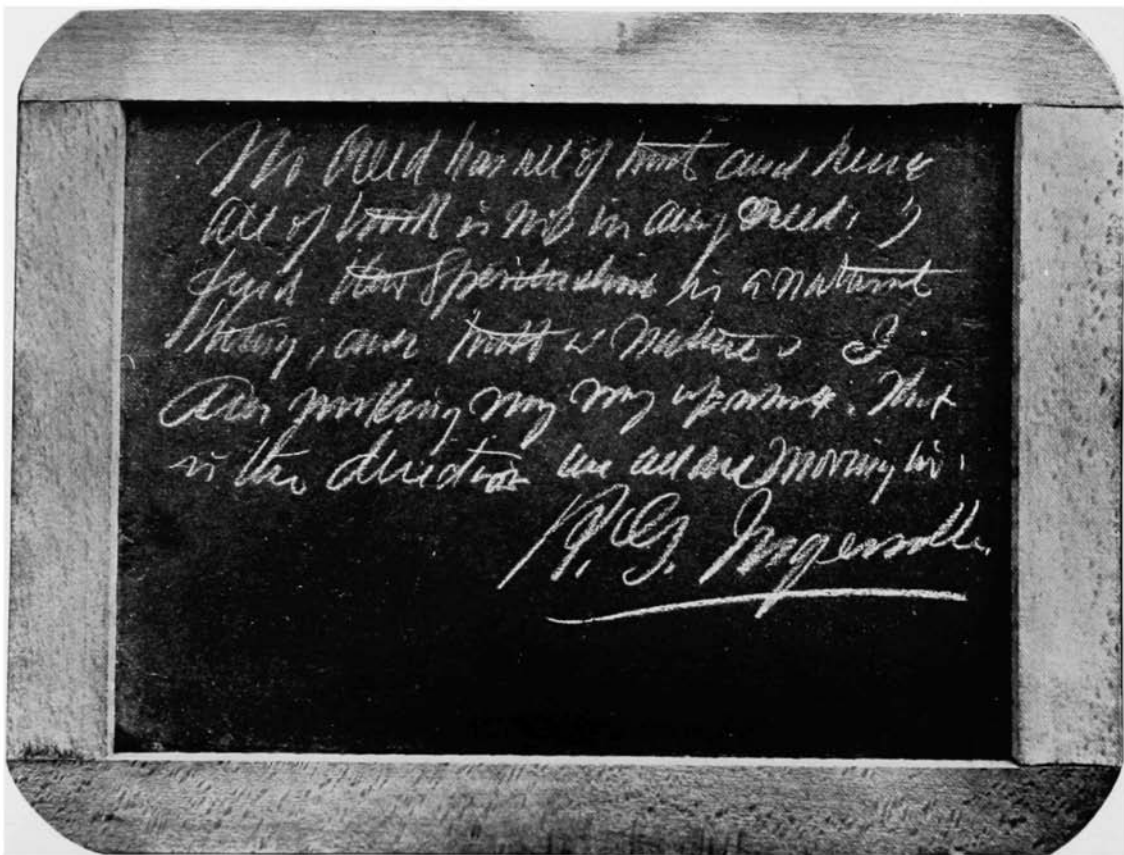 No Creed has all of truth and hence
all of truth is not in any creed. I
find that Spiritualism is a natural
thing, and truth is nature. I
am working my way upward. That
is the direction we all are moving in.
R. G. Ingersoll.